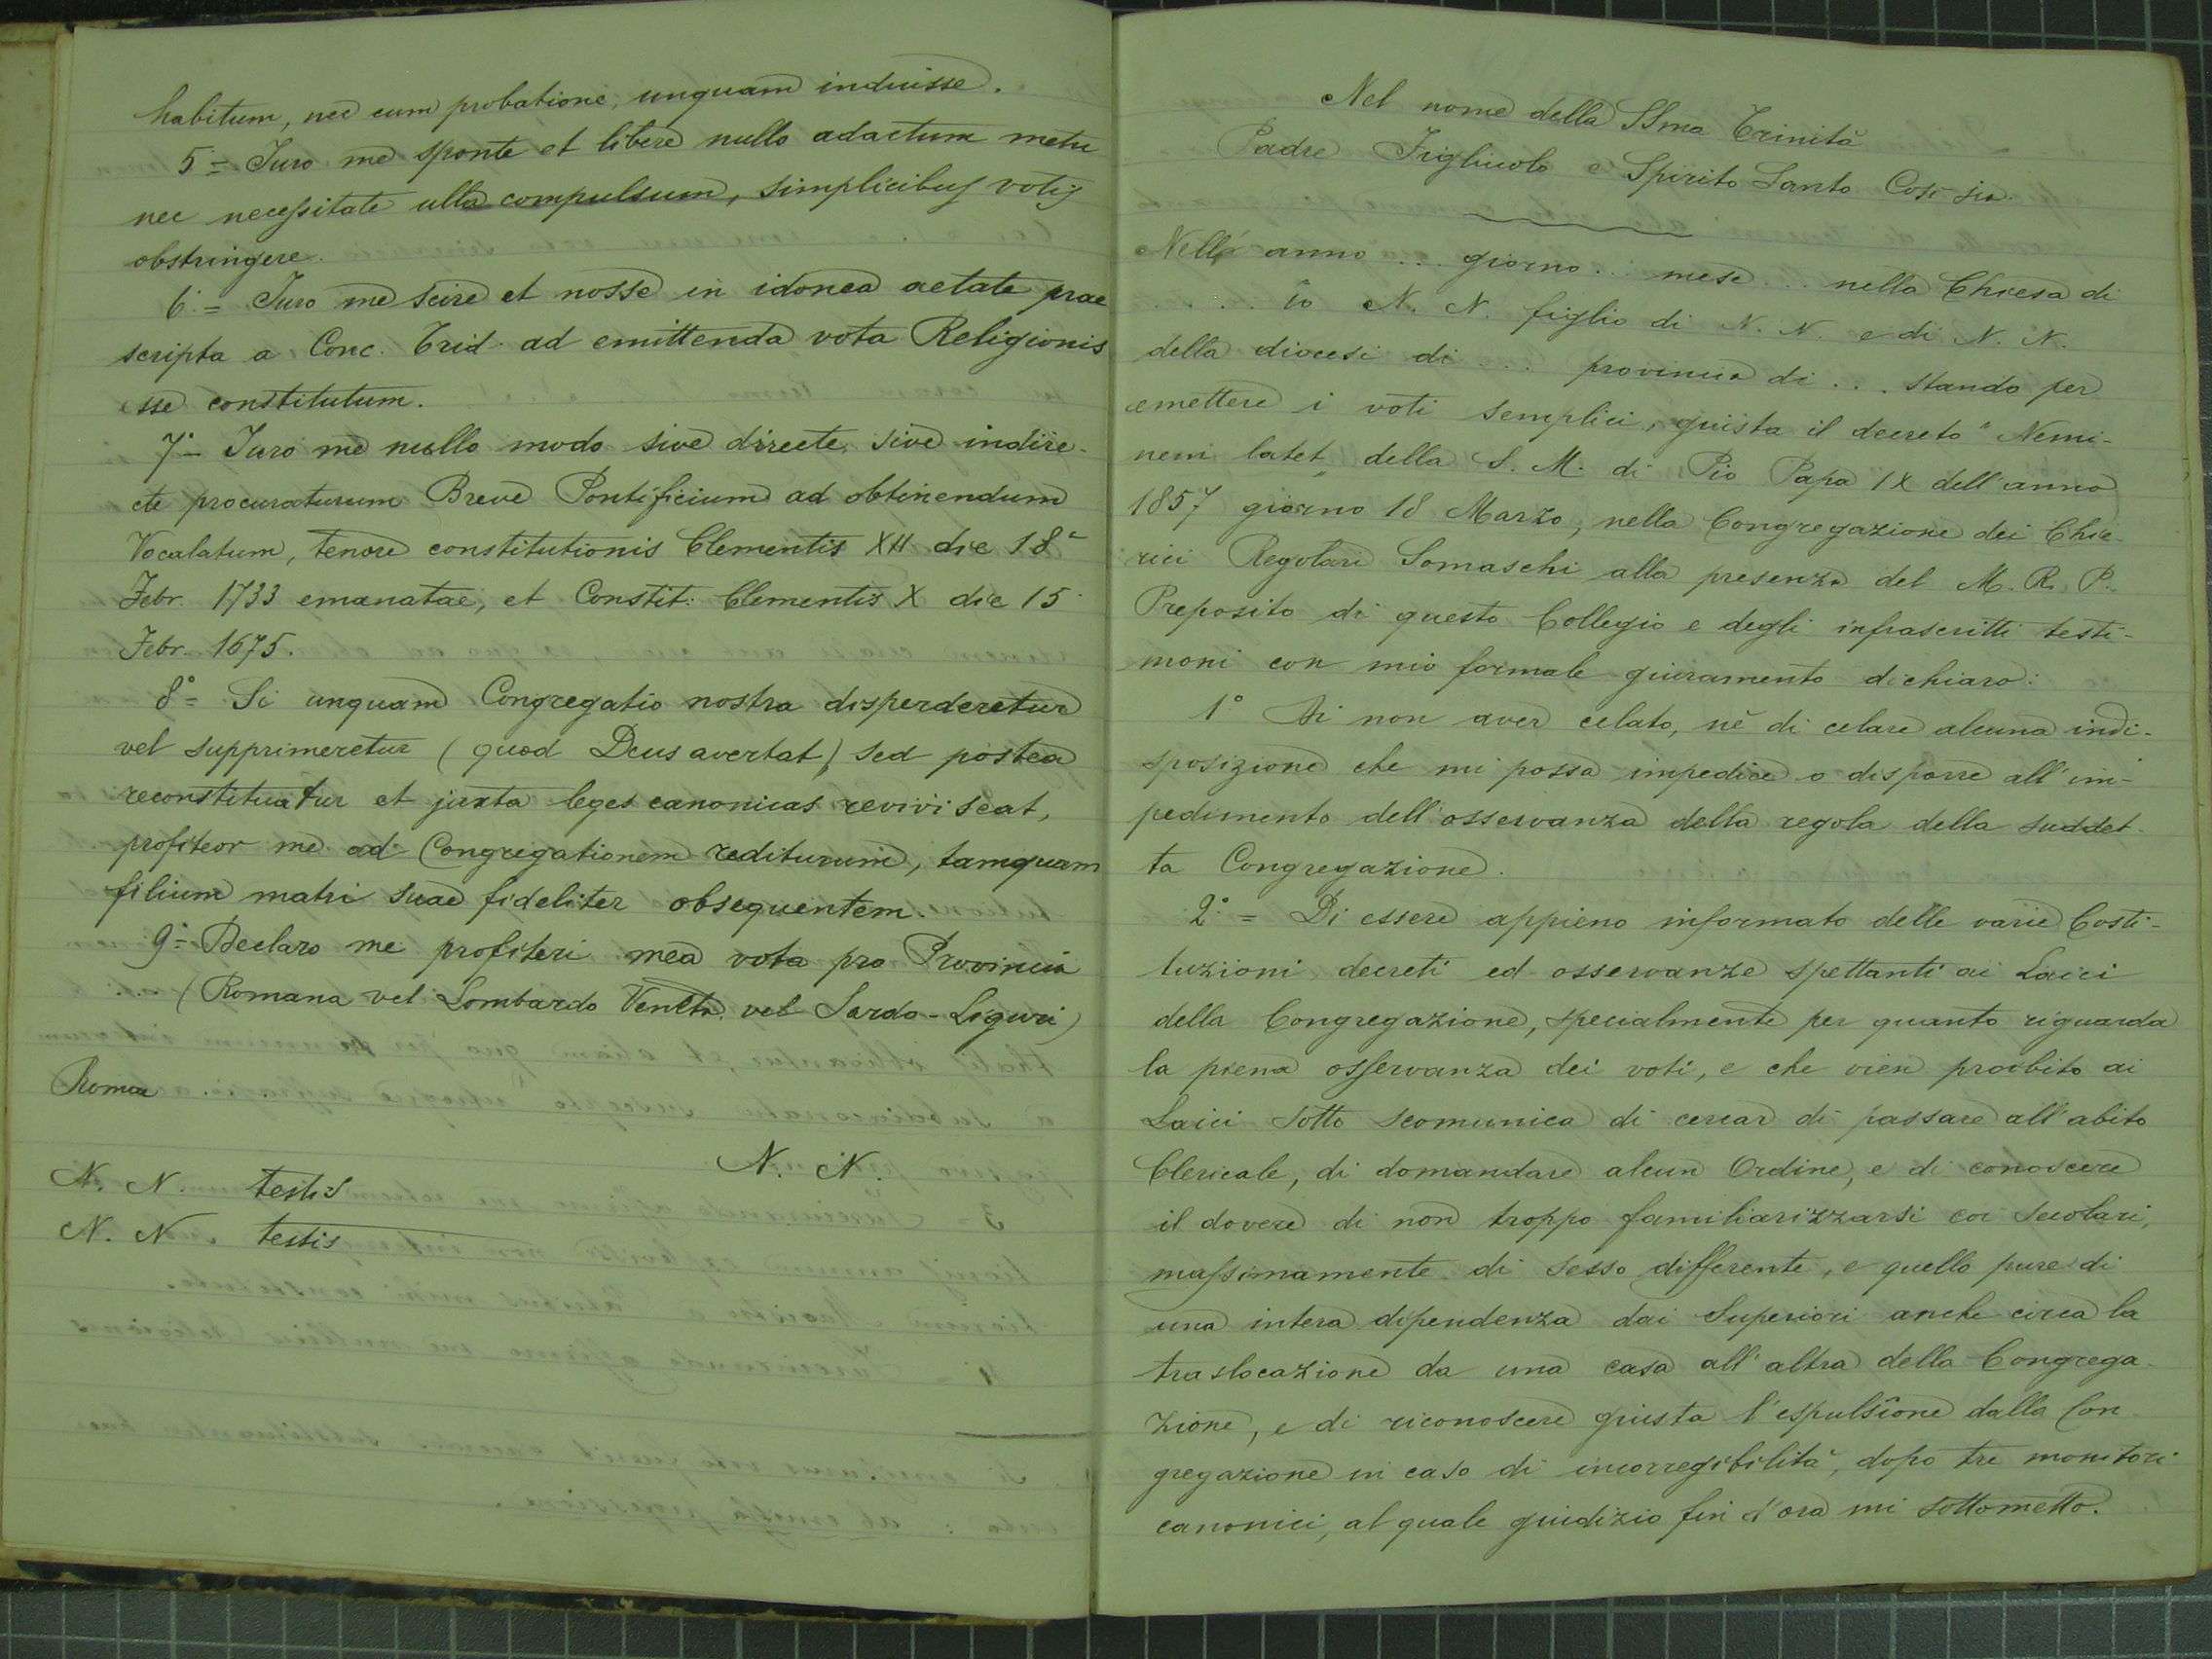 habitum, nec cum probatione, unquam induisse.
5° = Juro me sponte et libere nullo adactum metu
nec necessitate ulla compulsum, simplicibus votis
obstringere.
6° = Juro me scire et nosse in idonea aetate prae
scripta a Conc. Trid. ad emittenda vota Religionis
sse constitutum.
7° = Juro me nullo modo sive directe, sive indire-
cte procuraturum Breve Pontificium ad obtinendum
Vocalatum, tenore constitutionis Clementis XII die 18ª
Febr. 1733 emanatae, et Constit: Clementis X die 15
Febr. 1675.
8° = Si unquam Congregatio nostra disperderetur
vel supprimeretur (quod Deus avertat) sed postea
reconstituatur et juxta leges canonicas reviviscat,
profiteor me ad Congregationem rediturum, tamquam
filium matri suae fideliter obsequentem.
9° = Declaro me profiteri mea vota pro Provincia
... (Romana vel Lombardo Veneta vel Sardo-Liguri)
Romae
N. N.
N. N. testis
N. N. testis
Nel nome della SSma Trinità
Padre Figliuolo e Spirito Santo Così sia.
Nell' anno ... giorno ... mese ... nella Chiesa di
..... io N. N. figlio di N. N. e di N. N.
della diocesi di ... provincia di ... stando per
emettere i voti semplici, giusta il decreto "Nemi-
nem latet" della S. M. di Pio Papa IX dell'anno
1857 giorno 18 Marzo, nella Congregazione dei Chie-
rici Regolari Somaschi alla presenza del M. R. P.
Preposito di questo Collegio e degli infrascritti testi-
moni con mio formale giuramento dichiaro:
1° Di non aver celato, nè di celare alcuna indi-
sposizione che mi possa impedire o disporre all'im-
pedimento dell'osservanza della regola della suddet-
ta Congregazione.
2° = Di essere appieno informato delle varie Costi-
tuzioni decreti ed osservanze spettanti ai Laici
della Congregazione, specialmente per quanto riguarda
la piena osservanza dei voti, e che vien proibito ai
Laici sotto scomunica di cercar di passare all'abito
Clericale, di domandare alcun Ordine, e di conoscere
il dovere di non troppo familiarizzarsi coi Secolari,
massimamente di sesso differente, e quello pure di
una intera dipendenza dai Superiori anche circa la
traslocazione da una casa all'altra della Congrega-
zione, e di riconoscere giusta l'espulsione dalla Con-
gregazione in caso di incorregibilità, dopo tre monitori
canonici, al quale giudizio fin d'ora mi sottometto.